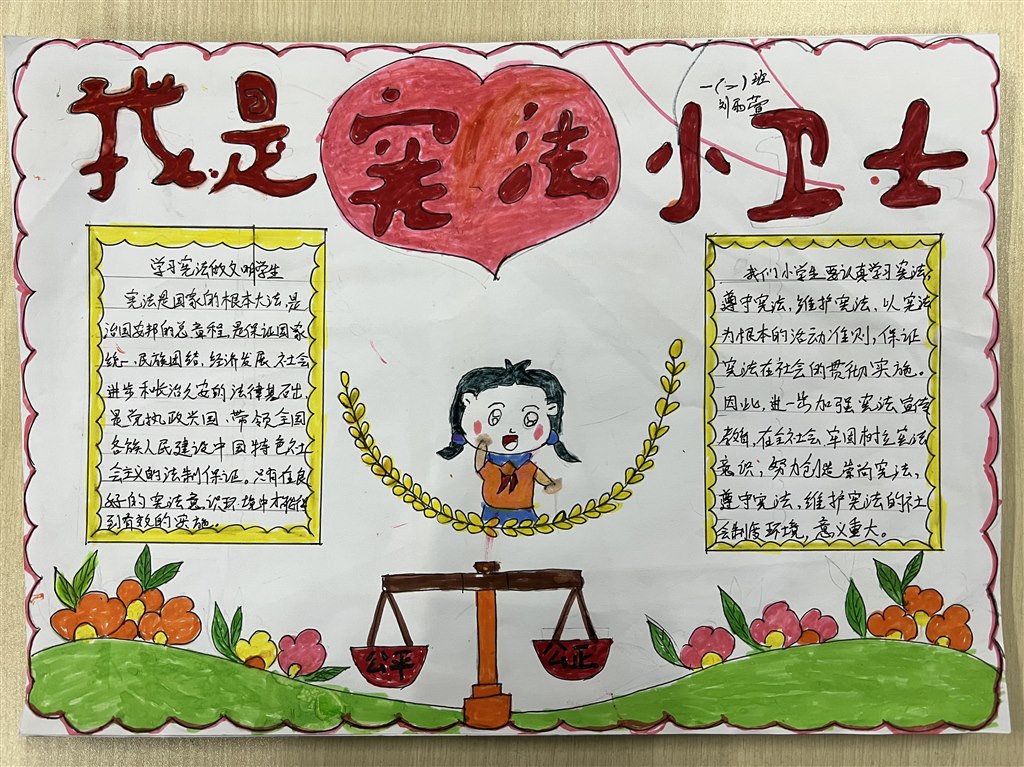 我是宪法小卫士
一(二)班
刘雨萱
学习宪法的文明学生
宪法是国家的根本大法,是
治国安邦的总章程,是保证国家
统一、民族团结、经济发展、社会
进步和长治久安的法律基石出,
是党执政兴国、带领全国
各族人民建设中国特色社
会主义的法制保证。只有在良
好的宪法意识环境中才能得
到有效的实施。
我们小学生要认真学习宪法,
遵守宪法,维护宪法、以宪法
为根本的活动准则,保证
宪法在社会的贯彻实施。
因此,进一步加强宪法宣传
教育,在全社会牢固树立宪法
意识,努力创造崇尚宪法,
遵守宪法、维护宪法的社
会制度环境,意义重大。
公平
公正